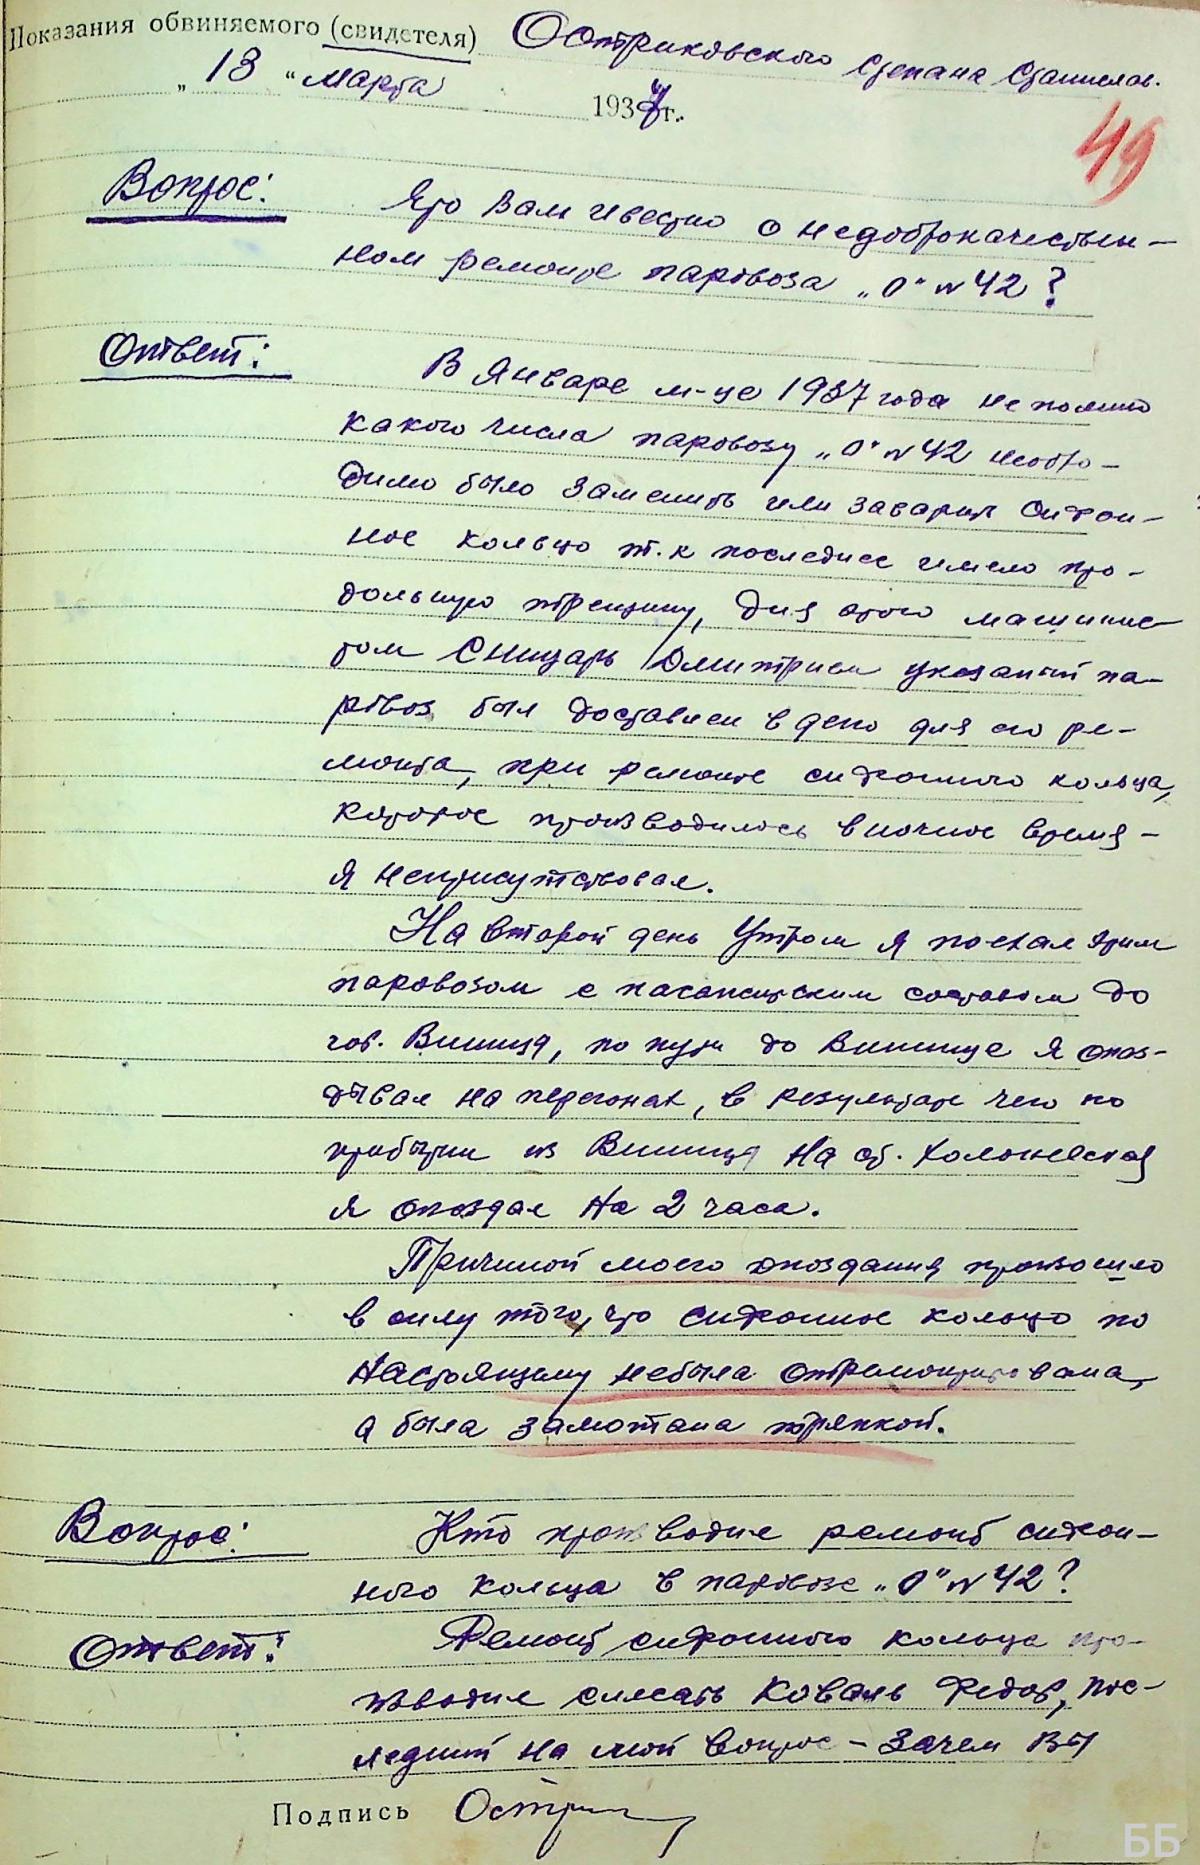 Показания обвиняемого (свидетеля) Остриковского Степана Станислав.
„ 13 “ марта 1937 г.
49
Вопрос: Что Вам известно о недоброкачествен-
ном ремонте паровоза „О“ № 42?
Ответ: В Январе м-це 1937 года не помню
какого числа паровозу „О“ № 42 необхо-
димо было заменить или заварить сифон-
ное кольцо т.к последнее имело про-
дольную трещину, для этого машинис
том Сницарь Дмитрием указаный па-
ровоз был доставлен в депо для его ре-
монта, при ремонте сифонного кольца,
которое производилось в ночное время -
я неприсутствовал.
На второй день Утром я поехал этим
паровозом с пасажирским составом до
гор. Винница, по пути до Винице я опаз-
дывал на перегонах, в результате чего по
прибытии из Винница на ст. Холоневская
я опоздал на 2 часа.
Причиной моего опоздания произошло
в силу того, что сифонное кольцо по
настоящему небыла отремонтирована,
а была замотана тряпкой.
Вопрос: Кто производил ремонт сифон-
ного кольца в паровозе „О“ № 42?
Ответ: Ремонт сифонного кольца про-
изводил слесарь Коваль Федор, пос-
ледний на мой вопрос - зачем Вы
Подпись Остри
ББ